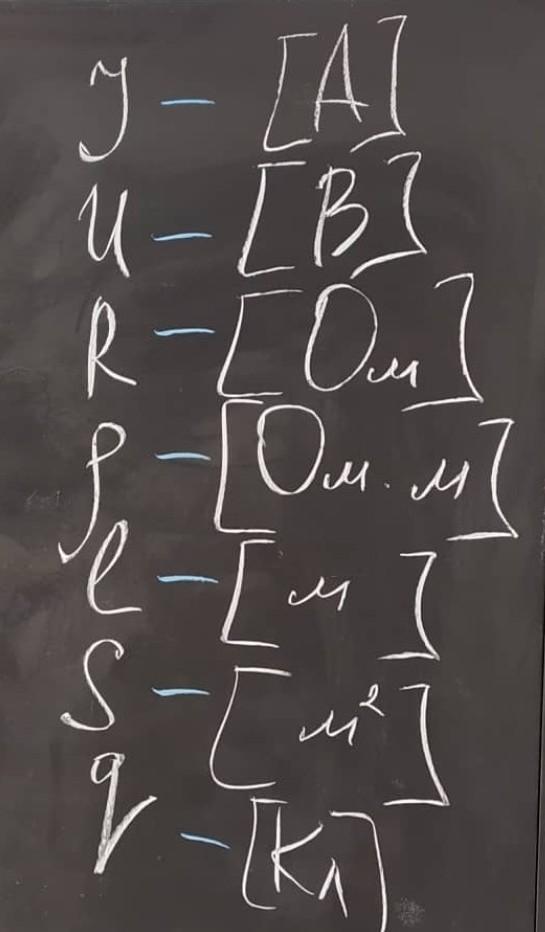 I – [А]
U – [В]
R – [Ом]
ρ – [Ом·м]
l – [м]
S – [м²]
q – [Кл]